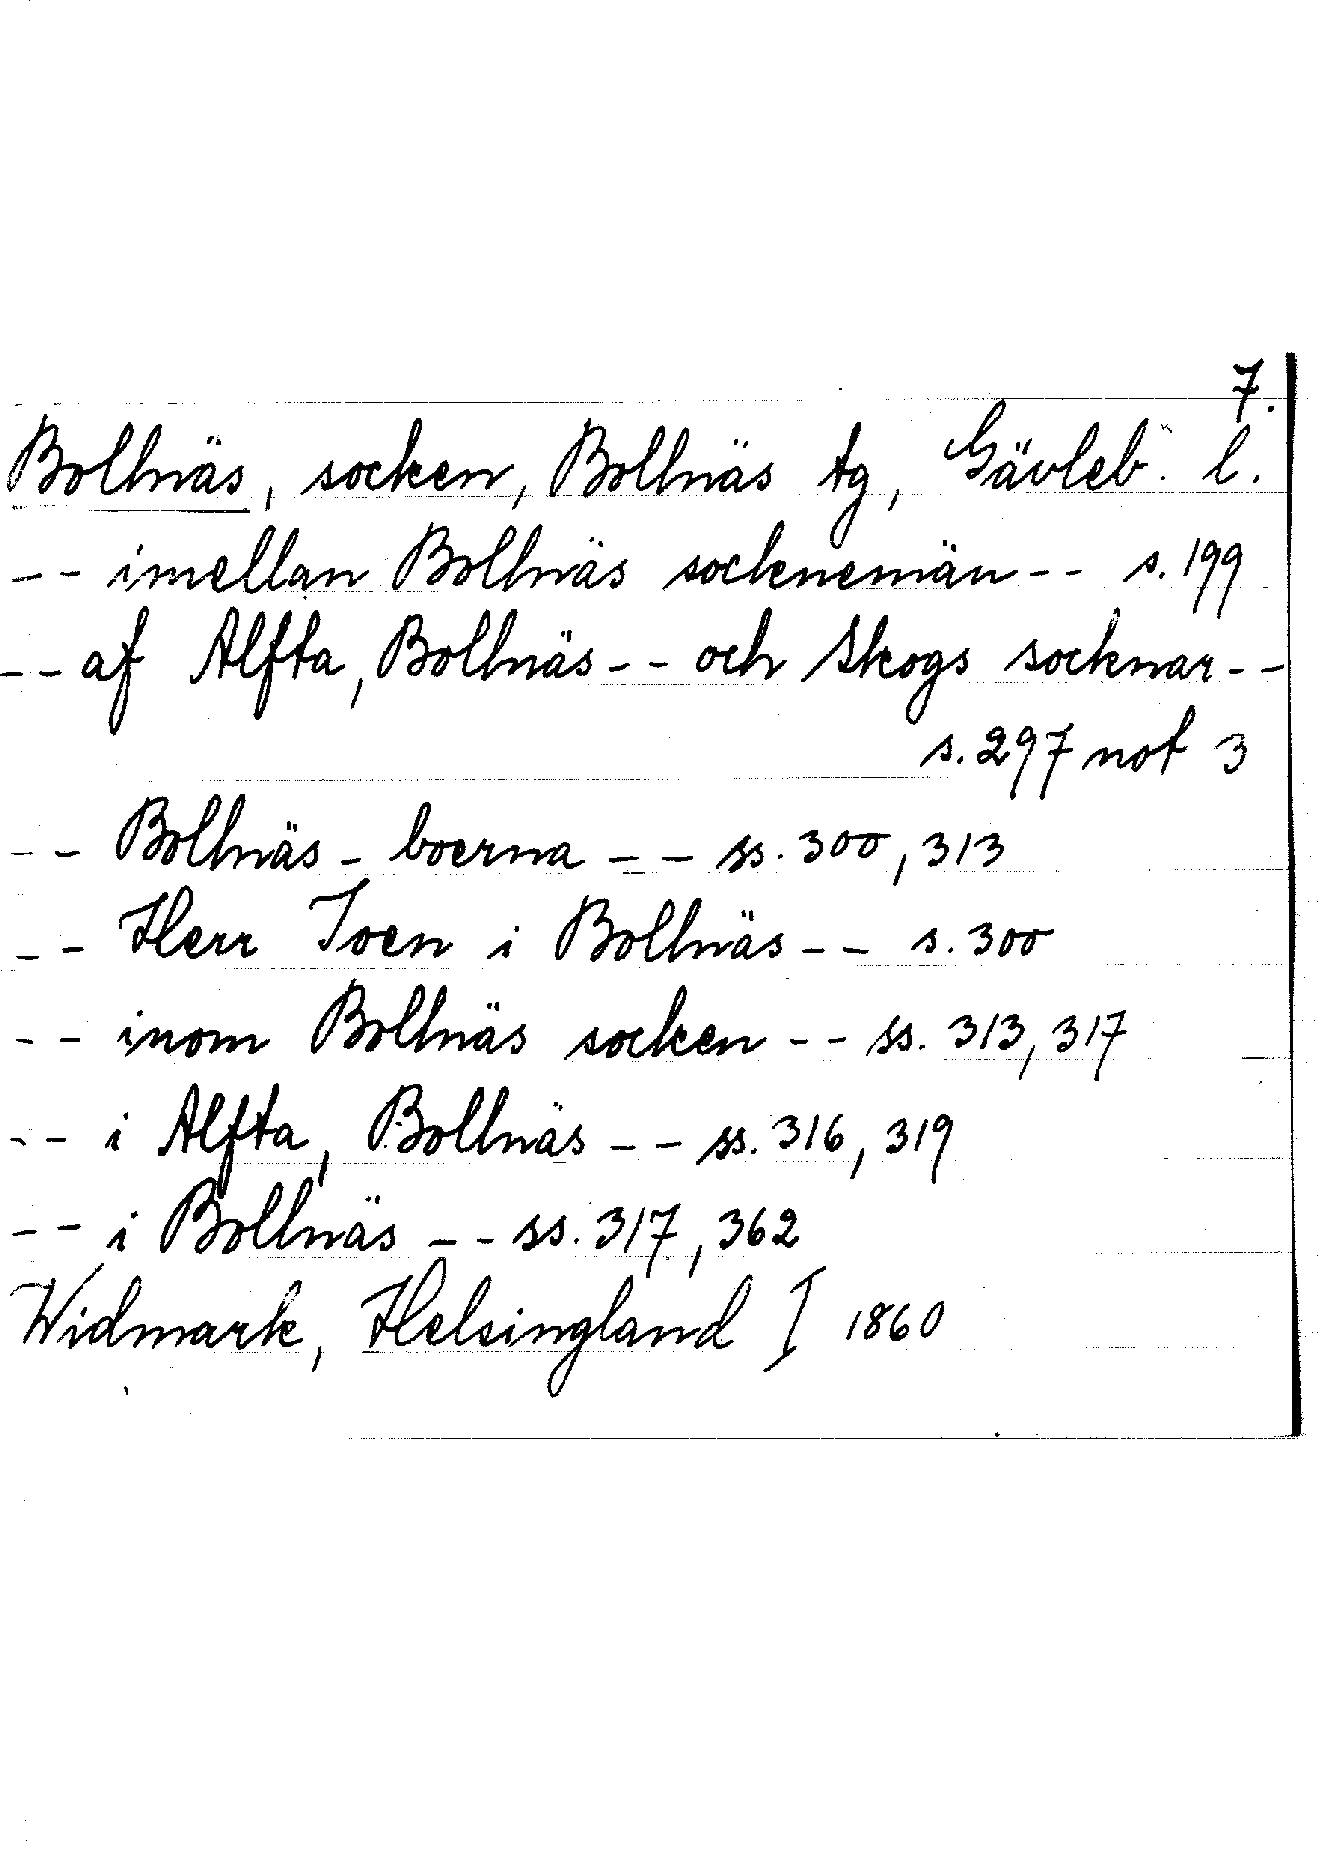 7.
Bollnäs, socken, Bollnäs tg, Gävleb. l.
-- imellan Bollnäs socknemän -- s. 199
-- af Alfta, Bollnäs -- och Skogs socknar --
s. 297 not 3
-- Bollnäs-boerna -- ss. 300, 313
-- Herr Joen i Bollnäs -- s. 300
-- inom Bollnäs socken -- ss. 313, 317
-- i Alfta, Bollnäs -- ss. 316, 319
-- i Bollnäs -- ss. 317, 362
Widmark, Helsingland I 1860